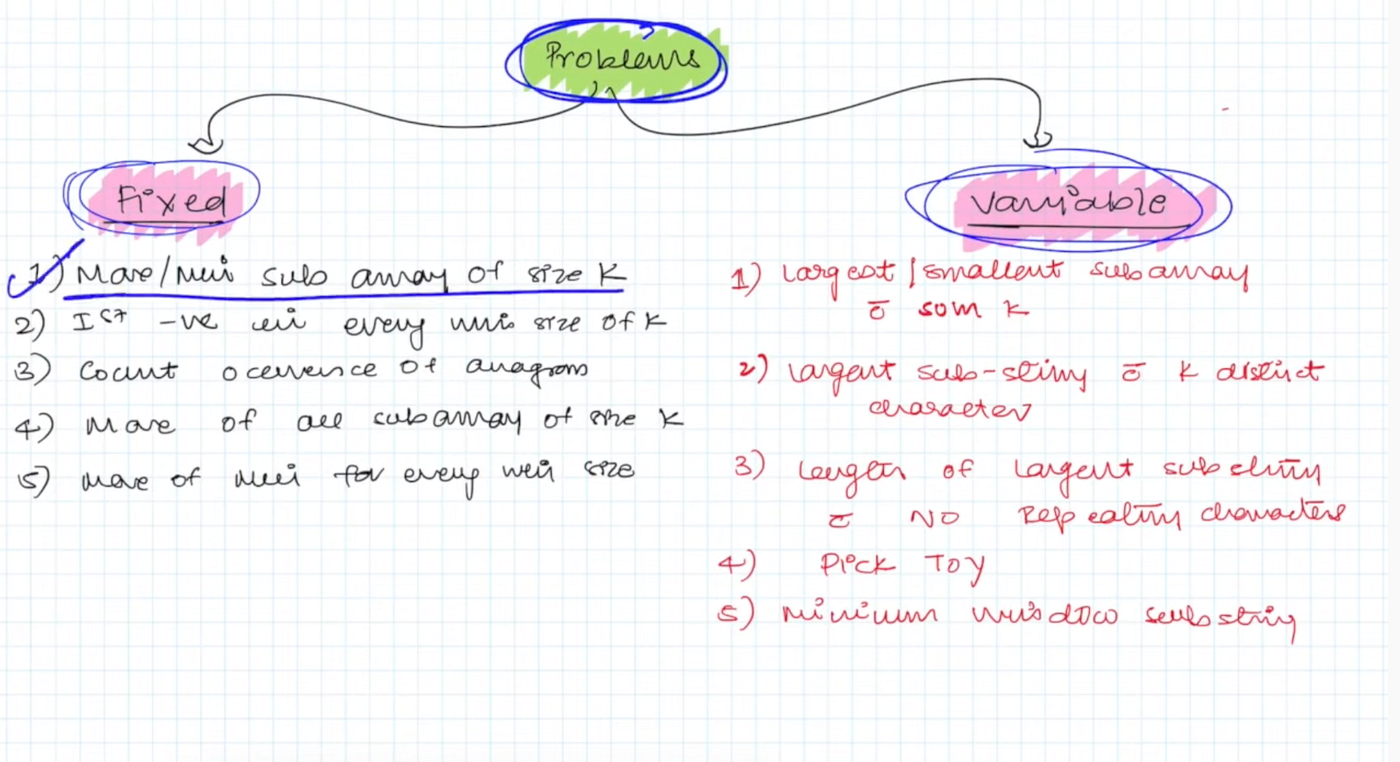 Problems
Fixed
Variable
1) Max/Min sub array of size K
2) Ist -ve in every win size of K
3) Count occurence of anagram
4) Max of all subarray of size K
5) Max of Min for every win size
1) Largest/smallest subarray
c̄ sum K
2) Largest sub-string c̄ K distinct
character
3) Length of largest substring
c̄ NO Repeating characters
4) Pick Toy
5) Minimum window substring